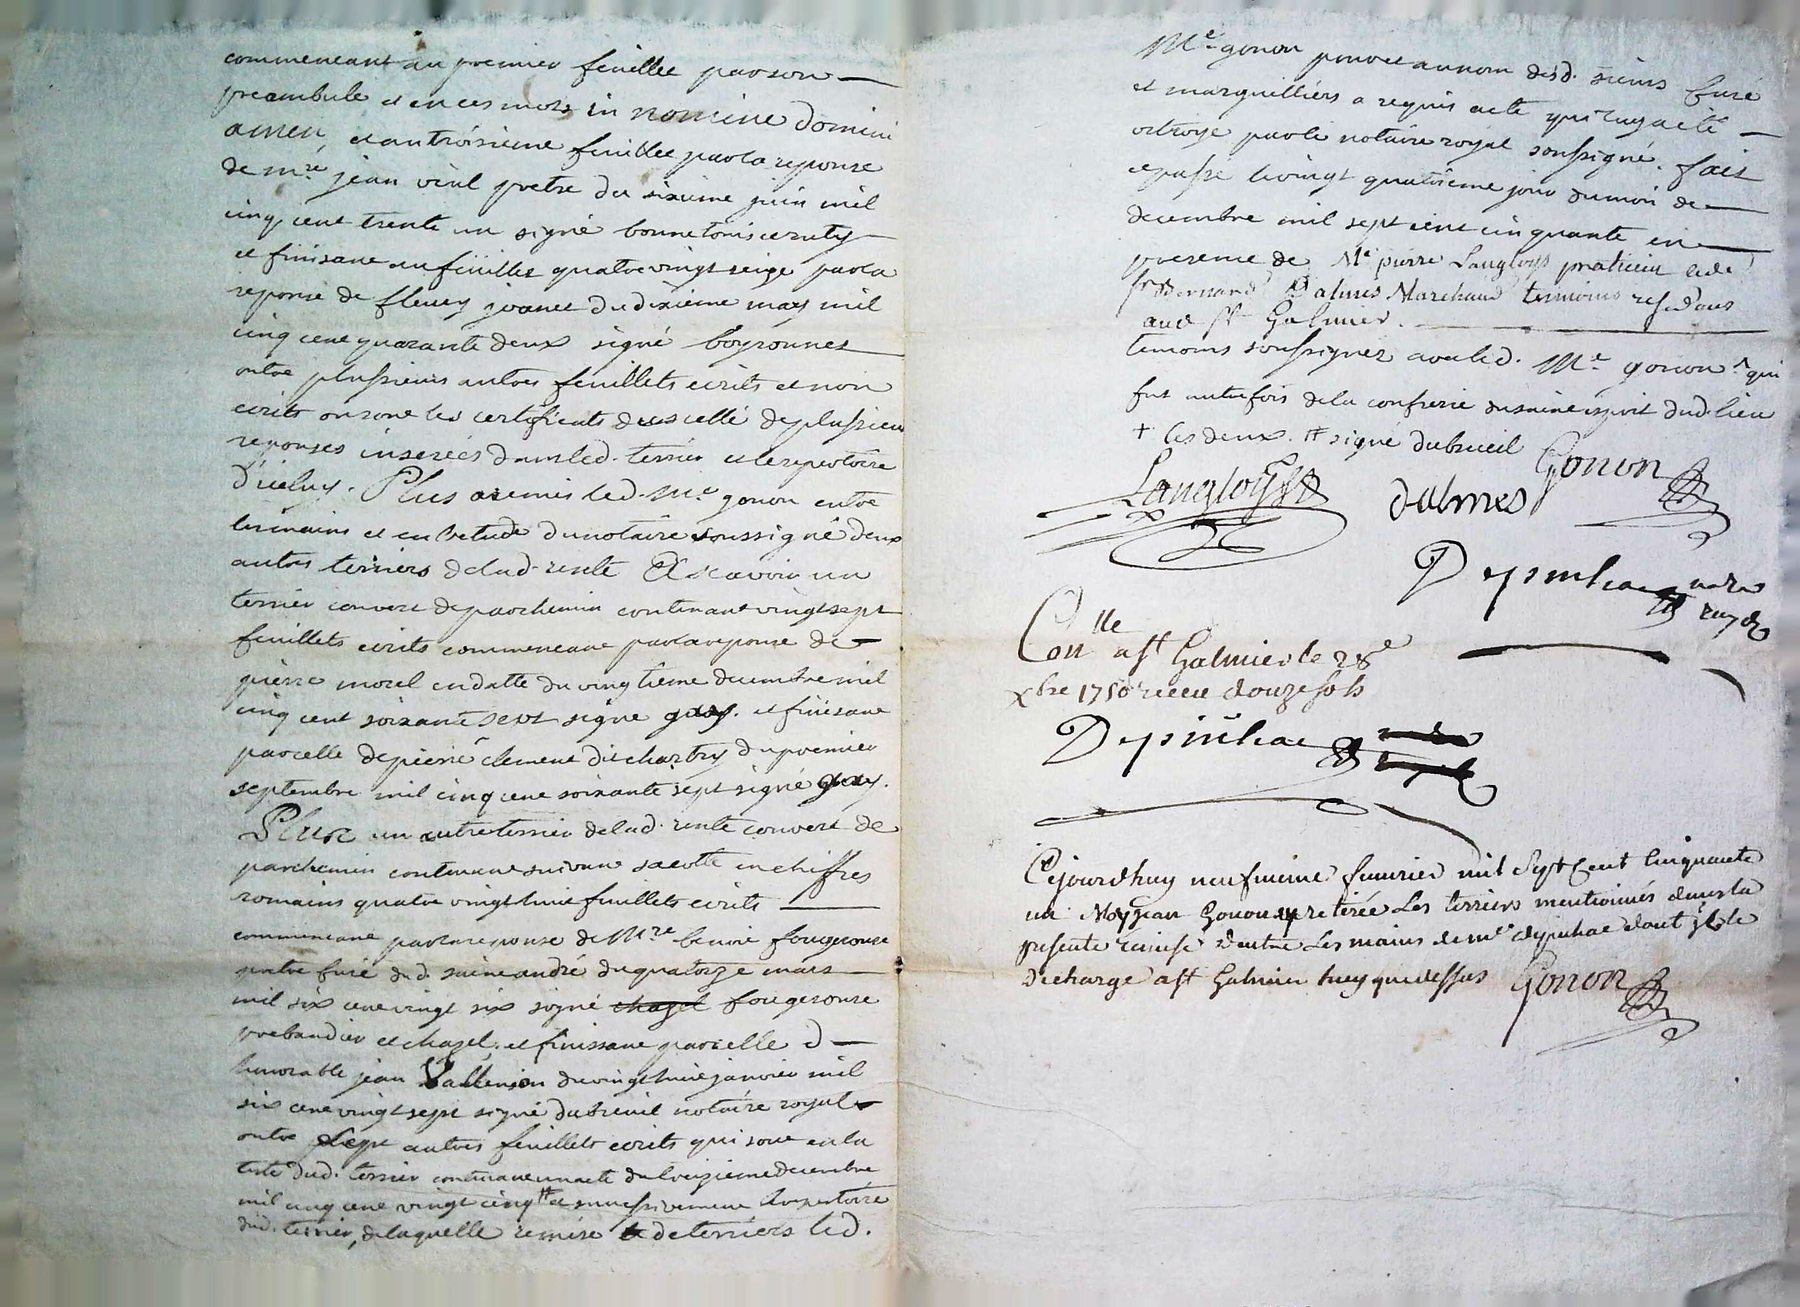 commencant au premier feuillet par son
preambule et en ces mots in nomine domini
amen, et au troisieme feuillet par la reponse
de mre jean vial pretre du sixieme juin mil
cinq cent trente un signé
et finisant au feuillet quatre vingt seize par la
reponse de fleury joanet du dixieme may mil
cinq cent quarante deux signé boyronnet
outre plussieurs autres feuillets ecrits et non
ecrits ou sont les certificats du scellé de plussieurs
reponses inserées dans led. terrier et le repertoire
d'iceluy. Plus a remis led. Me gonon entre
les mains et en l'etude du notaire soussigné deux
autres terriers de lad. rente Et scavoir un
terrier couvert de parchemin contenant vingt sept
feuillets ecrits commencant par la reponse de
pierre morel en datte du vingtieme decembre mil
cinq cent soixante sept signé guy. et finisant
par celle de pierre clement dit charbry du premier
septembre mil cinq cent soixante sept signé guy.
Plus un autre terrier de lad. rente couvert de
parchemin contenant suivant sa cotte en chiffres
romains quatre vingt huit feuillets ecrits
commencant par la reponse de Mre benoit fougerouse
pretre curé dud. saint andré du quatorze mars
mil six cent vingt six signé chazel fougerouse
prebandier et chazel, et finissant par celle d
honorable jean Vallension du vingt huit janvier mil
six cent vingt sept signé dubreuil notaire royal
outre sept autres feuillets ecrits qui sont en la
teste dud. terrier contenant un acte du treizieme decembre
mil cinq cent vingt cinq # et successivement le repertoire
dud. terrier, de laquelle remise de terriers led.
Me gonon pour et au nom desd. sieurs Curé
et marguilliers a requis acte qui luy a eté
octroyé par le notaire royal soussigné. fait
et passé le vingt quatrieme jour du mois de
decembre mil sept cent cinquante en
presence de Me pierre Langloys praticien et de
sr Bernard Dalmes Marchand temoins residans
aud St Galmier.
temoins soussignez avec led. Me gonon # qui
fut autrefois de la confrerie du saint esprit dud. lieu
+ les deux. # signé dubreuil Gonon
Langloys dalmes
Depinhac nore
royal
Conlle a St Galmier le 28e
xbre 1750 receu douze sols
Depinhac
Cejourdhuy neufvieme fevrier mil Sept Cent Cinquante
un Moy jean Gonon ay retirée Les terriers mentionnés dans la
presente remise d'entre Les mains de me depinhac dont je le
decharge a St Galmier huy que dessus Gonon